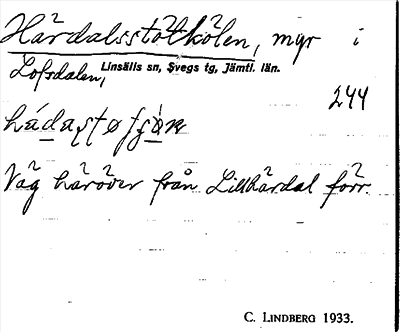 Härdalsstötkölen, myr i
Lofsdalen, Linsälls sn, Svegs tg, Jämtl. län.
244
Väg häröver från Lillhärdal förr.
C. LINDBERG 1933.